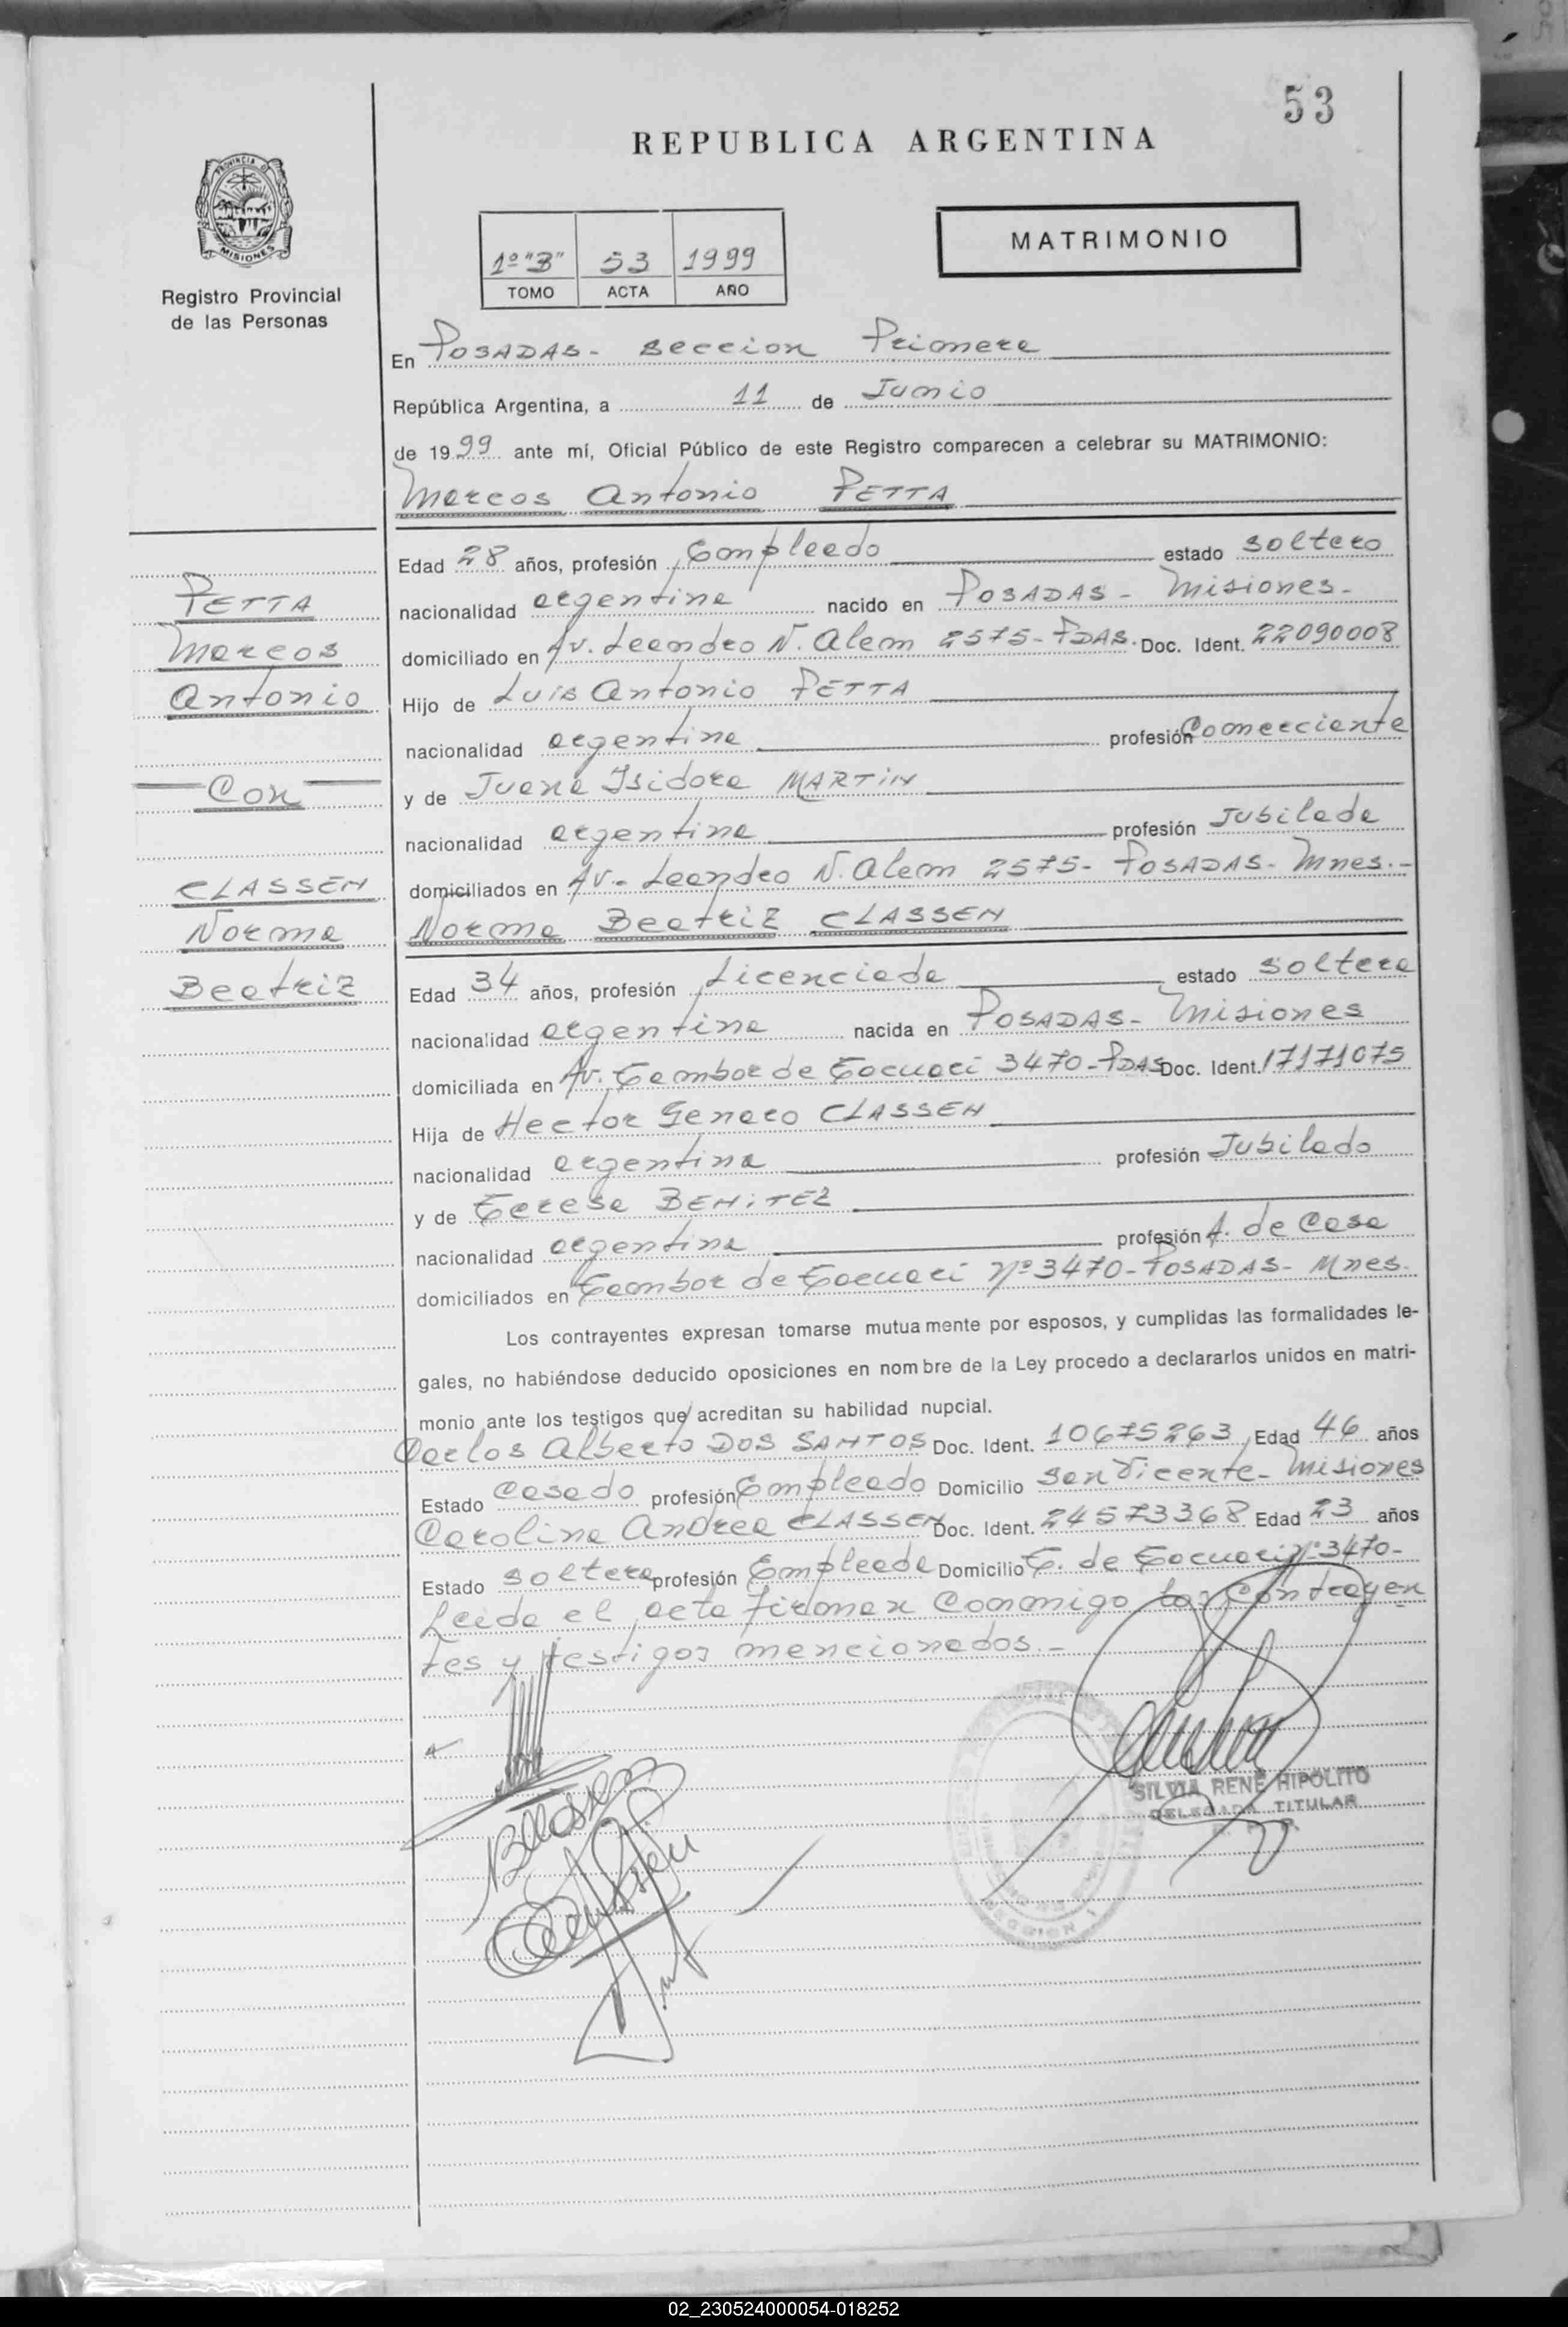 53
REPUBLICA ARGENTINA
PROVINCIA DE
MISIONES
Registro Provincial
de las Personas
1º "B" 53 1999
TOMO ACTA AÑO
MATRIMONIO
En POSADAS - seccion Primera
República Argentina, a 11 de Junio
de 1999 ante mí, Oficial Público de este Registro comparecen a celebrar su MATRIMONIO:
Marcos Antonio PETTA
PETTA
Marcos
Antonio
Con
CLASSEN
Norma
Beatriz
Edad 28 años, profesión Empleado estado soltero
nacionalidad argentina nacido en POSADAS - Misiones -
domiciliado en Av. Leandro N. Alem 2575 - PDAS. Doc. Ident. 22090008
Hijo de Luis Antonio PETTA
nacionalidad argentina profesión Comerciante
y de Juana Isidora MARTiN
nacionalidad argentina profesión Jubilada
domiciliados en Av. Leandro N. Alem 2575 - POSADAS - Mnes. -
Norma Beatriz CLASSEN
Edad 34 años, profesión Licenciada estado soltera
nacionalidad argentina nacida en POSADAS - Misiones
domiciliada en Av. Tambor de Tacuari 3470 - PDAS Doc. Ident. 17171075
Hija de Hector Genaro CLASSEN
nacionalidad argentina profesión Jubilado
y de Teresa BENiTEZ
nacionalidad argentina profesión A. de Casa
domiciliados en Tambor de Tacuari Nº 3470 - POSADAS - Mnes.
Los contrayentes expresan tomarse mutuamente por esposos, y cumplidas las formalidades le-
gales, no habiéndose deducido oposiciones en nombre de la Ley procedo a declararlos unidos en matri-
monio ante los testigos que acreditan su habilidad nupcial.
Carlos Alberto DOS SANTOS Doc. Ident. 10675263 Edad 46 años
Estado Casado profesión Empleado Domicilio San Vicente - Misiones
Carolina Andrea CLASSEN Doc. Ident. 24573368 Edad 23 años
Estado soltera profesión Empleada Domicilio T. de Tacuari Nº 3470 -
Leida el acta firman conmigo los Contrayen
tes y testigos mencionados. -
SILVIA RENÉ HIPÓLITO
DELEGADA TITULAR
02_230524000054-018252